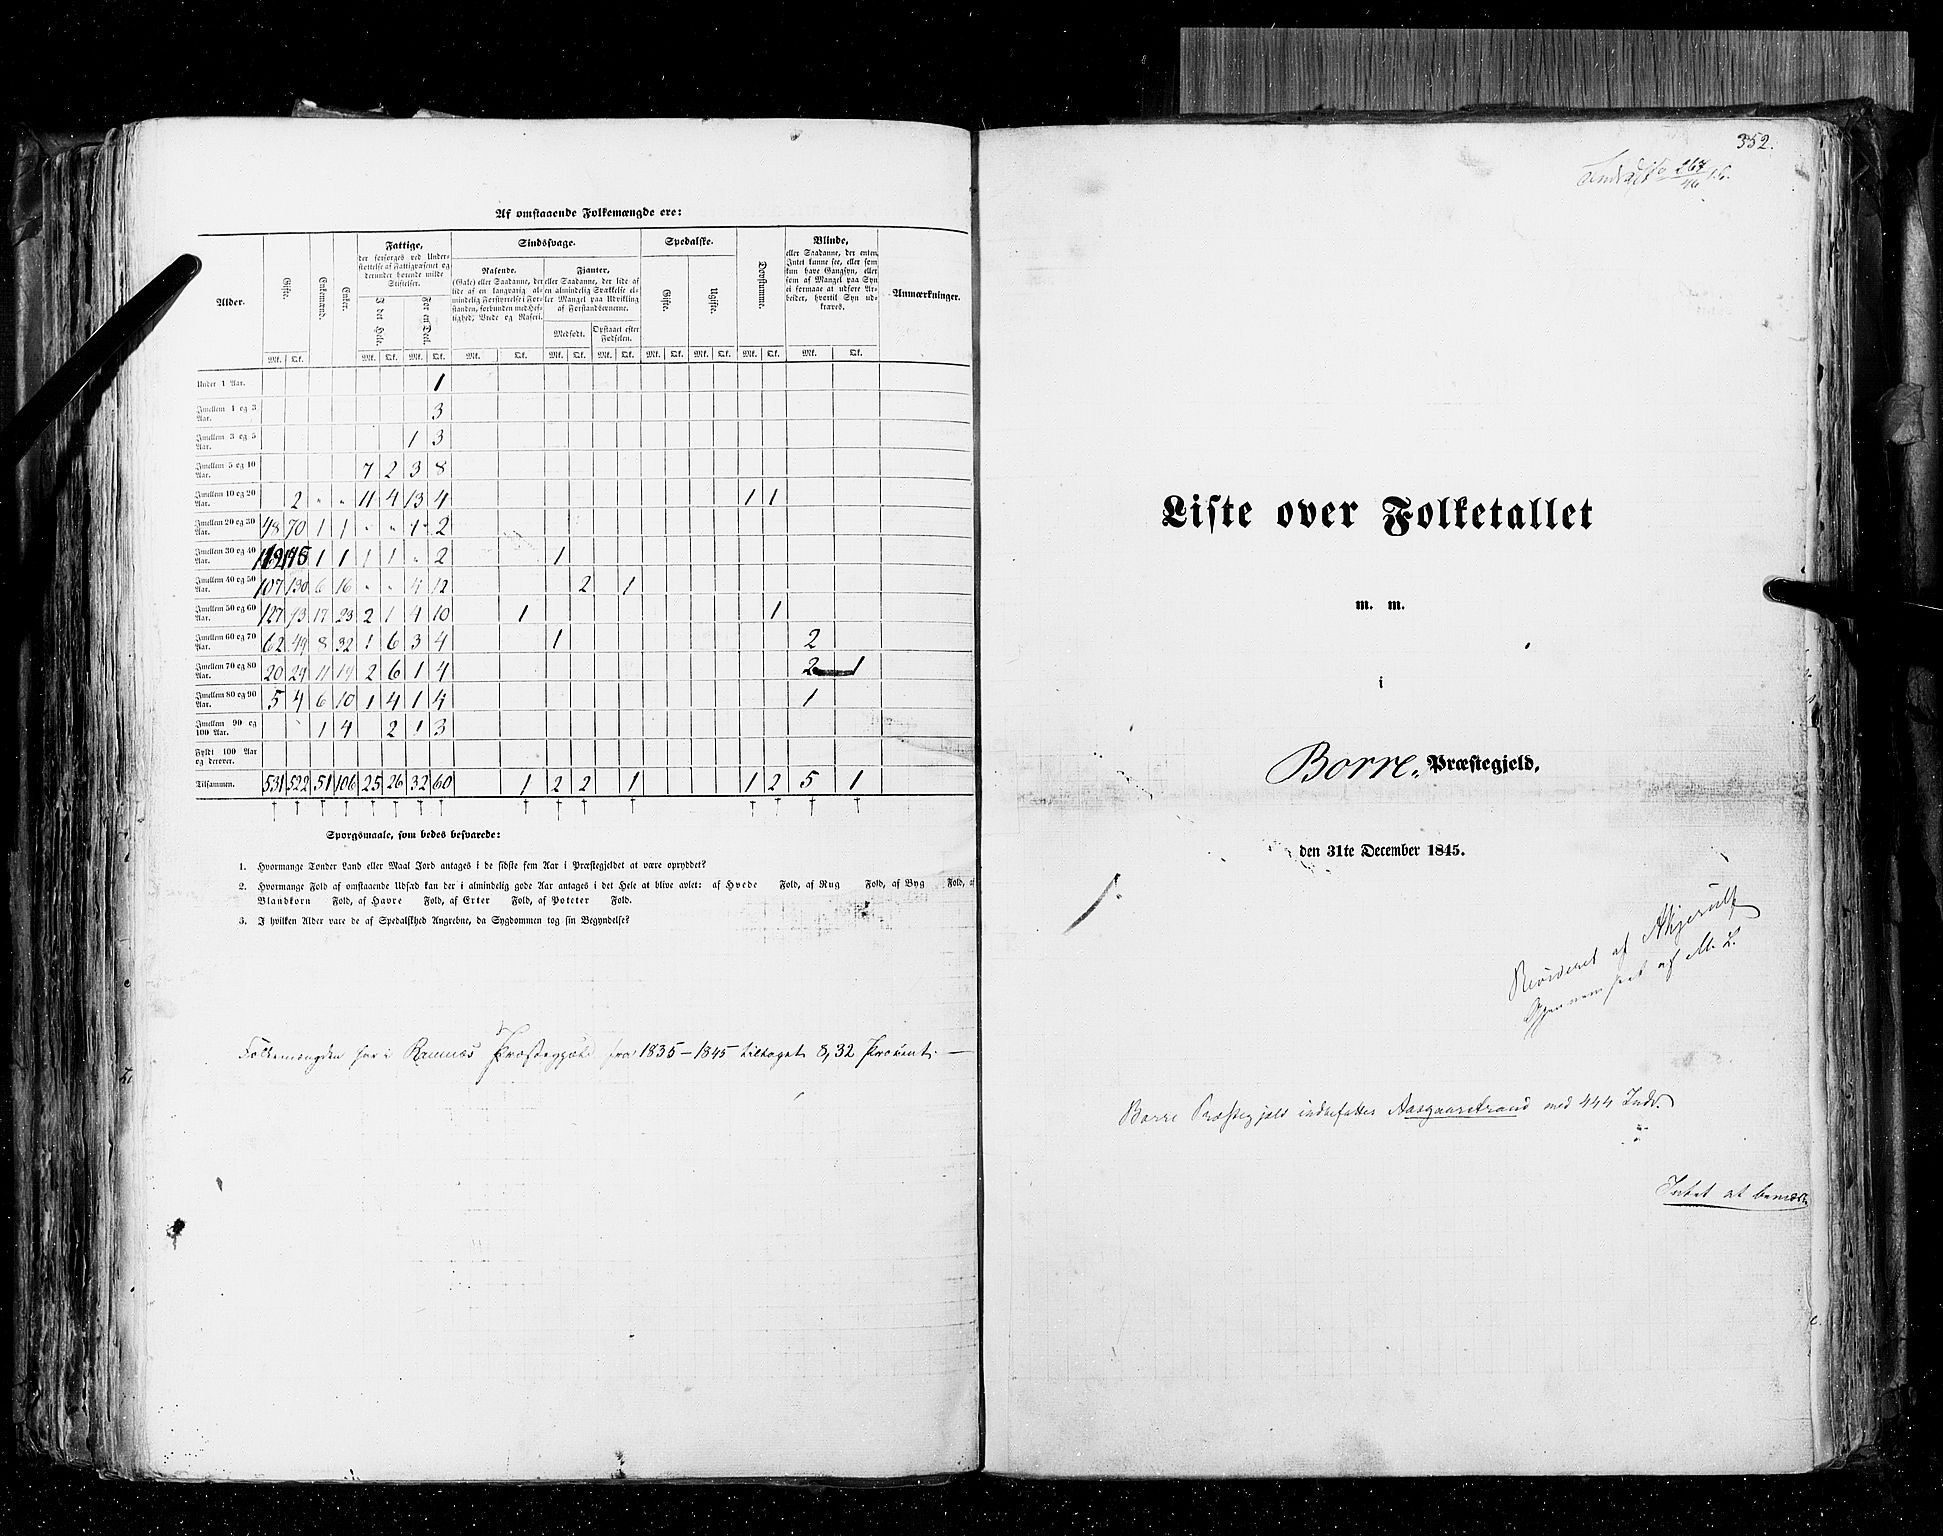 Af omstaaende Folkemængde ere:
Alder. Gifte. Enkemænd. Enker. Fattige, Sindssvage. Spedalske. Døvstumme. Blinde, Anmærkninger.
der forsørges ved Under-
støttelse af Fattigvæsenet og
derunder hørende milde
Stiftelser.
I det Hele. For en Deel.
Rasende.
(Gale) eller Saadanne, der
lide af en langvarig al-
mindelig Forstyrrelse i For-
standen, forbunden med Hef-
tighed, Vrede og Raseri.
Fjanter,
eller Saadanne, der lide af
en almindelig Svækkelse el-
ler Mangel paa Udvikling
af Forstandsevnerne.
Medfødt. Opstaaet efter Fødselen.
Gifte. Ugifte.
eller Saadanne, der enten
Intet kunne see, eller som
kun have Gangsyn, eller
som af Mangel paa Syn
ei formaae at udføre Ar-
beider, hvortil Syn ud-
kræves.
Mk. Qk. Mk. Qk. Mk. Qk. Mk. Qk. Mk. Qk. Mk. Qk. Mk. Qk. Mk. Qk. Mk. Qk. Mk. Qk.
Under 1 Aar. 1
Imellem 1 og 3 Aar. 3
Imellem 3 og 5 Aar. 1 3
Imellem 5 og 10 Aar. 7 2 3 8
Imellem 10 og 20 Aar. 2 " " 11 4 13 4 1 1
Imellem 20 og 30 Aar. 48 70 1 1 " " 1 2
Imellem 30 og 40 Aar. 1 1 1 1 " 2 1
Imellem 40 og 50 Aar. 107 130 6 16 " " 4 12 2 1
Imellem 50 og 60 Aar. 127 93 17 23 2 1 4 10 1 1
Imellem 60 og 70 Aar. 62 49 8 32 1 6 3 4 1 2
Imellem 70 og 80 Aar. 20 29 11 19 2 6 1 4 2 1
Imellem 80 og 90 Aar. 5 4 6 10 1 4 1 4 1
Imellem 90 og 100 Aar. 1 4 2 1 3
Fyldt 100 Aar og derover.
Tilsammen. 531 522 51 106 25 26 32 60 1 2 2 1 1 2 5 1
Spørgsmaale, som bedes besvarede:
1. Hvormange Tønder Land eller Maal Jord antages i de sidste fem Aar i Præstegjeldet at være opryddet?
2. Hvormange Fold af omstaaende Udsæd kan der i almindelig gode Aar antages i det Hele at blive avlet: af Hvede Fold, af Rug Fold, af Byg Fold, af
Blandkorn Fold, af Havre Fold, af Erter Fold, af Poteter Fold.
3. I hvilken Alder vare de af Spedalskhed Angrebne, da Sygdommen tog sin Begyndelse?
Folkemængden har i Ramnæs Præstegjeld fra 1835-1845 tiltaget 8,32 Procent. —
352.
267
46
Liste over Folketallet
m. m.
i
Borre. Præstegjeld,
den 31te December 1845.
1.
Revideret af AKjerulf
Gjennemseet af M. L.
Borre Præstegjeld indbefatter Aasgaarstrand med 444 Indv.
Intet at bemærke